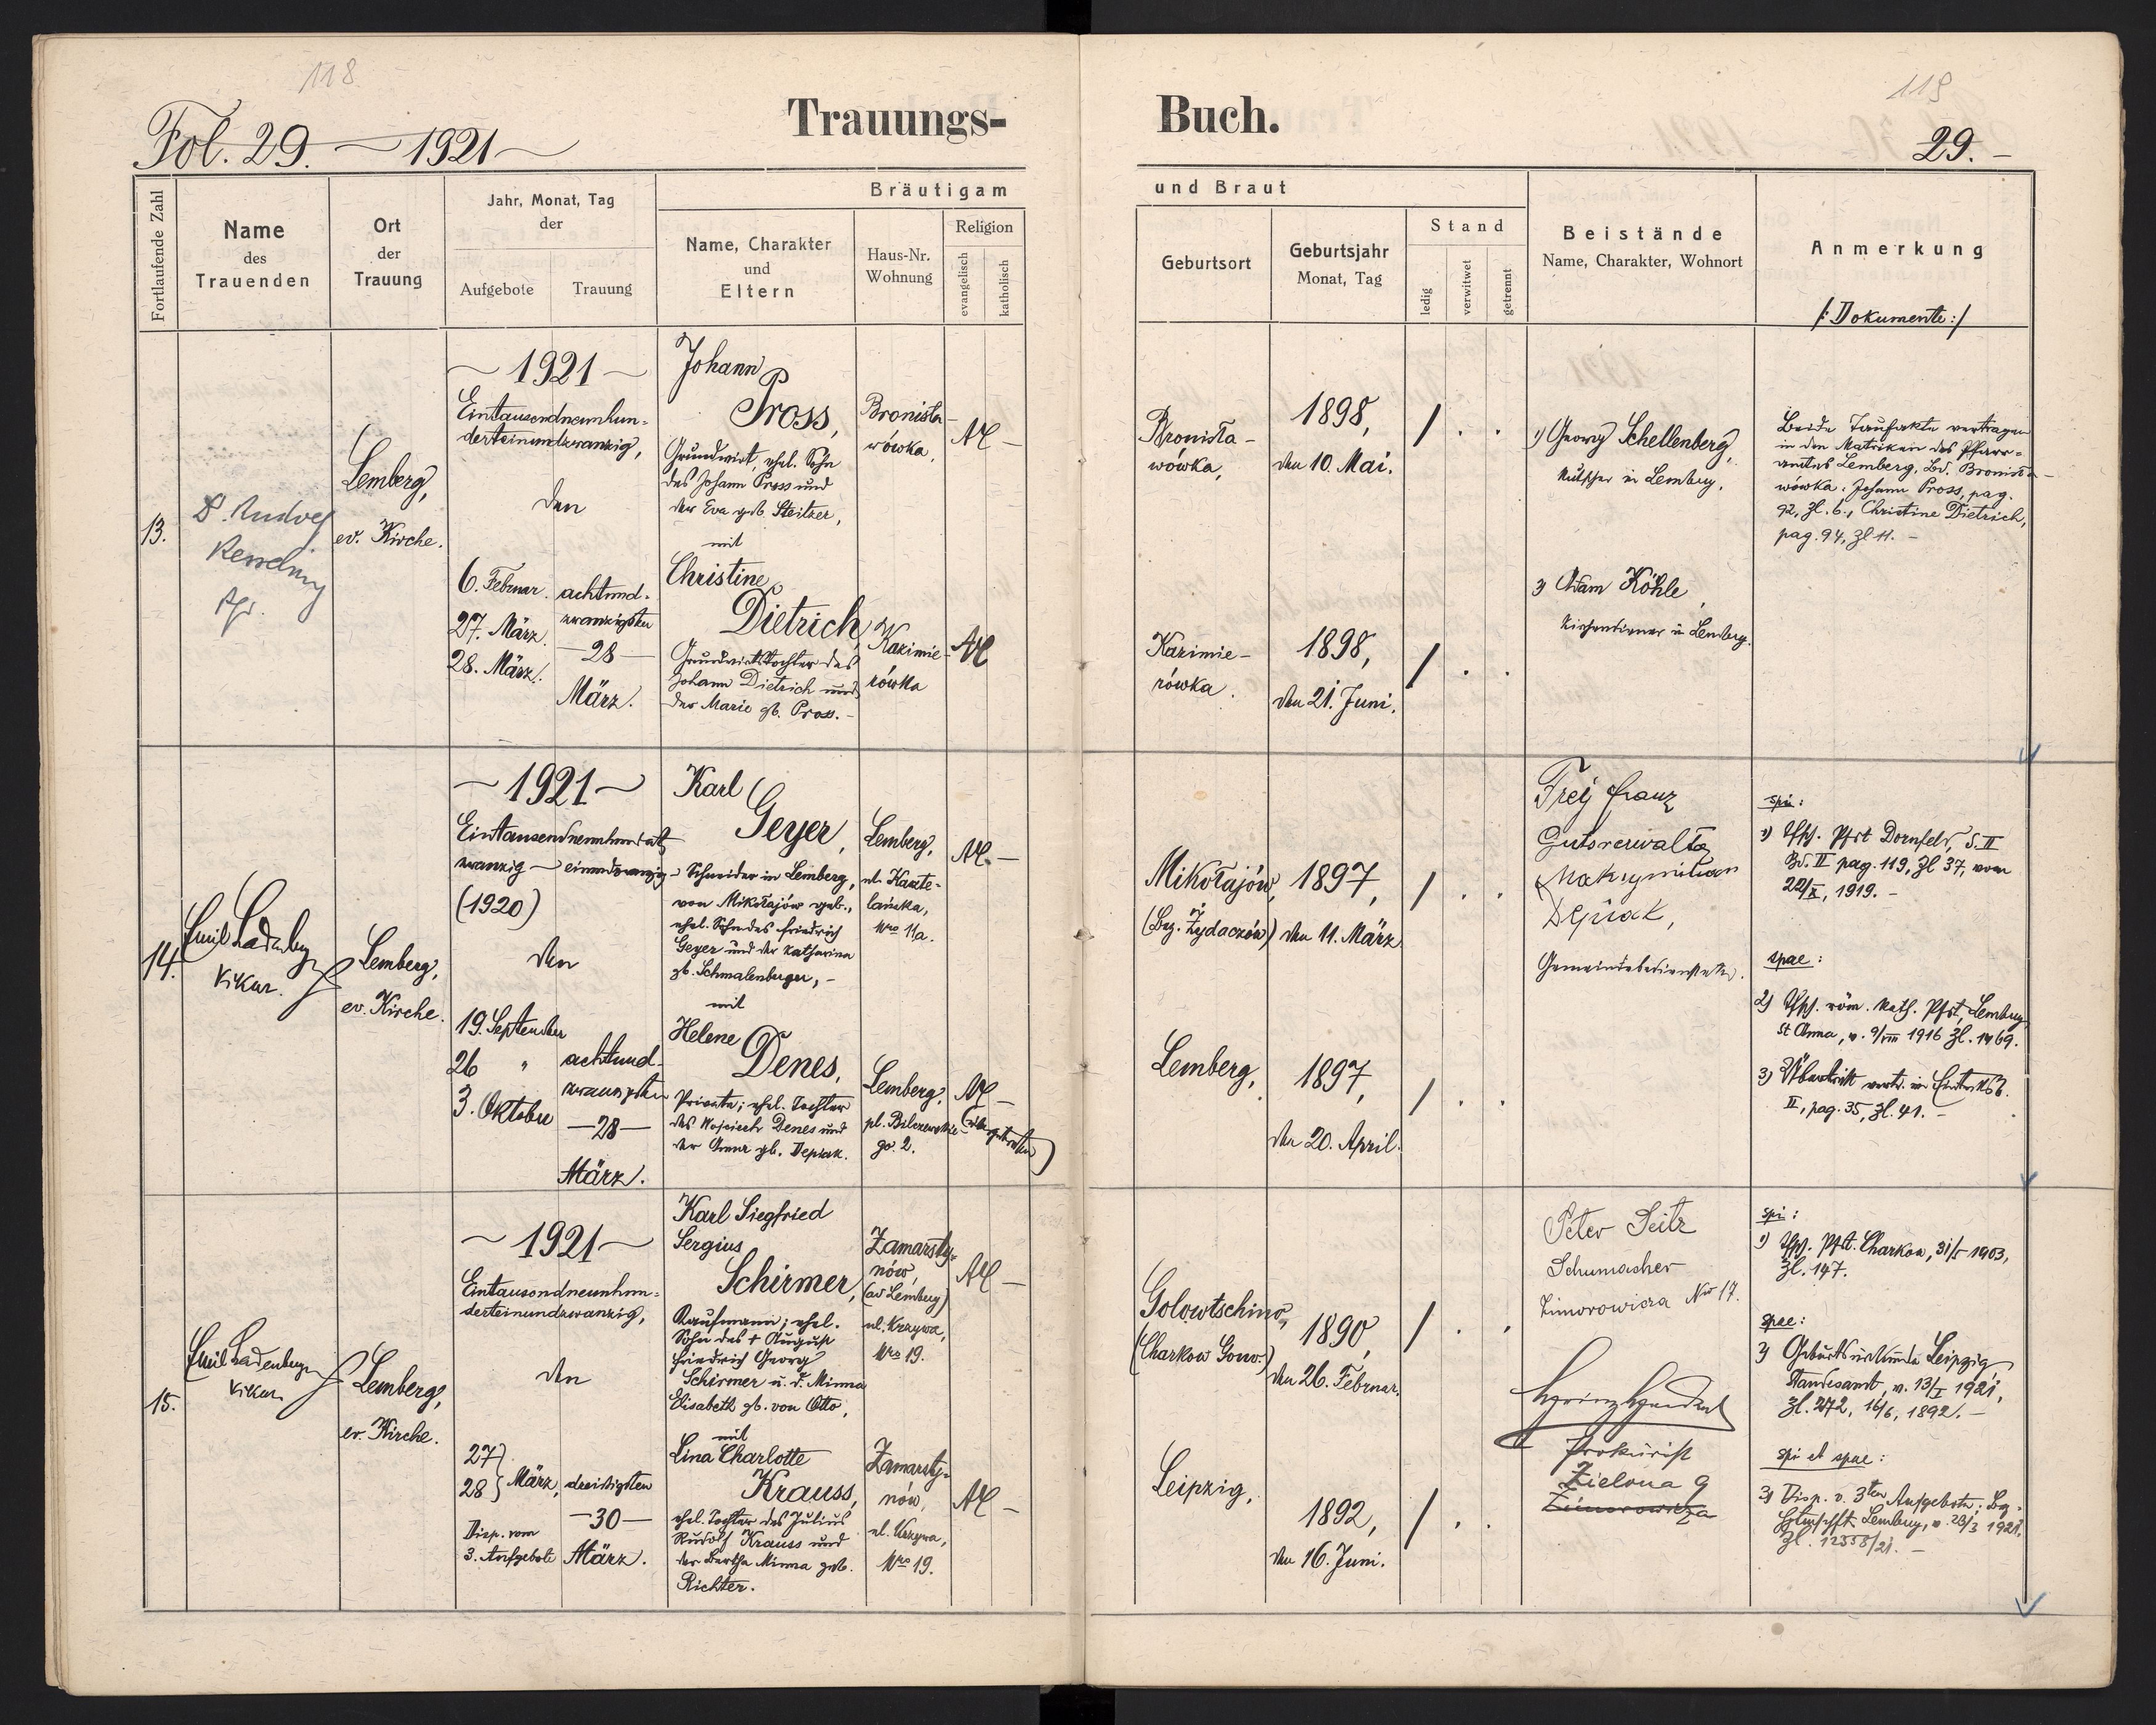 118
119
Fol. 29. — 1921 —
29. -
Trauungs-
Buch.
Fortlaufende Zahl
Name
des
Trauenden
Ort
der
Trauung
Jahr, Monat, Tag
der
Aufgebote
Trauung
Bräutigam
Name, Charakter
und
Eltern
Haus-Nr.
Wohnung
Religion
evangelisch
katholisch
und Braut
Geburtsort
Geburtsjahr
Monat, Tag
Stand
ledig
verwitwet
getrennt
Beistände
Name, Charakter, Wohnort
Anmerkung
/: Dokumente :/
13.
Lemberg,
ev. Kirche.
— 1921 —
Eintausendneunhun-
derteinundzwanzig,
den
6. Februar.
27. März.
28. März.
achtund-
zwanzigsten
—28—
März.
Johann
Pross,
Grundwirt, ehel. Sohn
des Johann Pross und
der Eva geb. Steitzer,
mit
Christine
Dietrich,
Grundwirtstochter des
Johann Dietrich und
der Marie gb. Pross. -
Bronisła-
wówka,
AC -
Kazimie-
rówka
AC
Bronisła-
wówka,
1898,
den 10. Mai.
/ . .
Kazimie-
rówka.
1898,
den 21. Juni.
/ . .
1) Georg Schellenberg,
Kutscher in Lemberg.
2) Adam Köhle,
Kirchendiener in Lemberg.
Beide Taufakte vertragen
in den Matriken des Pfarr-
amtes Lemberg, Bd. Bronisła-
wówka: Johann Pross, pag.
92, Zl. 6., Christine Dietrich,
pag. 94, Zl 11. -
14.
Emil Ladenberger
Vikar.
Lemberg,
ev. Kirche.
— 1921 —
zwanzig — einundzwanzig
(1920)
den
19. September
26 "
3. Oktober
achtund-
zwanzigsten
—28—
März.
Karl
Geyer,
Schneider in Lemberg,
von Mikołajów geb.,
ehel. Sohn des Friedrich
Geyer und der Katharina
gb. Schmalenberger, -
mit
Helene
Denes,
Private; ehel. Tochter
des Wojciech Denes und
der Anna gb. Depiak.
Lemberg,
ul. Kaszte-
lańska,
Nro 11a.
AC. -
Lemberg,
pl. Bilczewskie-
go 2.
AC -
(übergetreten)
Mikołajów,
(Bez. Żydaczów)
1897,
den 11. März
/ . .
Lemberg,
1897,
den 20. April.
/ . .
Frej Franz
Gutsverwalter
Maksymilian
Gemeindebediensteter.
spi:
1) Tfsch. Pfst Dornfeld, S. II
Bd. II pag. 119, Zl 37, vom
22/X, 1919. -
spae:
2) Tfsch. röm. kath. Pfst, Lemberg
St Anna, v. 9/VIII 1916 Zl. 1469.
3) Übertritt vertr. im Eintrittsb.
II, pag. 35, Zl. 41. -
15.
Emil Ladenberger
Vikar
Lemberg,
ev. Kirche.
— 1921 —
Eintausendneunhun-
derteinundzwanzig,
den
27
28 } März,
Disp. vom
3. Aufgebote
dreißigsten
—30—
März.
Karl Siegfried
Sergius
Schirmer,
Kaufmann; ehel.
Sohn des + August
Friedrich Georg
Schirmer u. d. Minna
Elisabeth gb. von Otto,
mit
Lina Charlotte
Krauss,
ehel. Tochter des Julius
Rudolf Krauss und
der Bertha Minna geb.
Richter.
Zamarsty-
nów,
(ad Lemberg)
ul. Krzywa,
Nro 19.
AC -
Zamarsty-
nów,
ul. Krzywa,
Nro 19.
AC -
Golowtschino,
(Charkow Gouv.)
1890,
den 26. Februar.
/ . .
Leipzig,
1892,
den 16. Juni.
/ . .
Peter Seitz
Schumacher
Zimorowicza Nro 17.
Prokurist
Zielona 9
Zimorowicza
spi:
1) Tfsch. Pfst. Charkow, 31/5 1903,
Zl. 147.
spae:
2) Geburtsurkunde Leipzig,
Standesamt, v. 13/I 1921,
Zl. 2172, 16/6, 1892. -
spi et spae:
3) Disp. v. 3ten Aufgebote: Bez-
Lemberg, v. 23/3 1921,
Zl. 12558/21. -